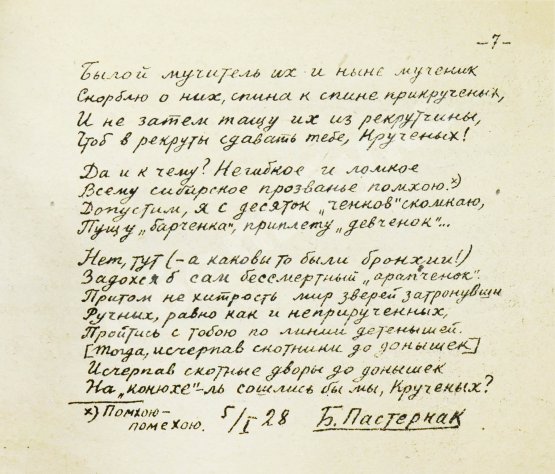 -7-
Былой мучитель их и ныне мученик
Скорблю о них, спина к спине прикрученых,
И не затем тащу их из рекрутчины,
Чтоб в рекруты сдавать тебе, Крученых!
Да и к чему? Негибкое и ломкое
Всему сибирское прозванье помхою.x)
Допустим, я с десяток „ченков" скомкаю,
Пущу „барченка", приплету „девченок"...
Нет, тут (-а каковы то были бронхии!)
Задохся б сам бессмертный „арапченок".
Притом не хитрость мир зверей затронувши
Ручных, равно как и неприрученных,
Пройтись с тобою по линии детенышей.
[Тогда, исчерпав скотники до донышек]
Исчерпав скотные дворы до донышек
На „конюхе"-ль сошлись бы мы, Крученых?
x) Помхою-
помехою.
5/I 28
Б. Пастернак